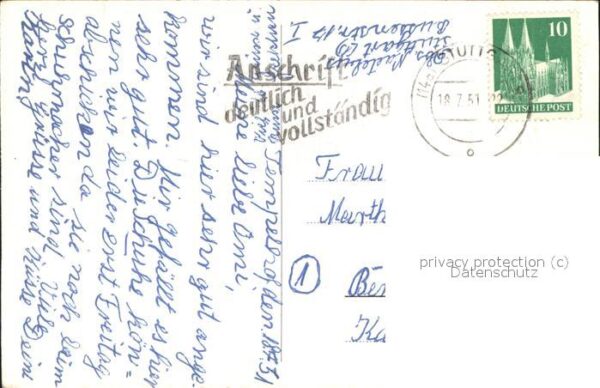 Tempelhof, den 18.7.51
Meine liebe Omi,
wir sind hier sehr gut ange-
kommen. Mir gefällt es hier
sehr gut. Die Schuhe kön=
nen wir leider erst Freitag
abschicken da sie noch beim
Schuhmacher sind. Viele
herzl. Grüsse und Küsse Dein
Abs.
Stuttgart
I.
Anschrift
deutlich
und
vollständig
STUTTG
18.7.51
10
DEUTSCHE POST
Frau
Marth
1
privacy protection (c)
Datenschutz
Ka